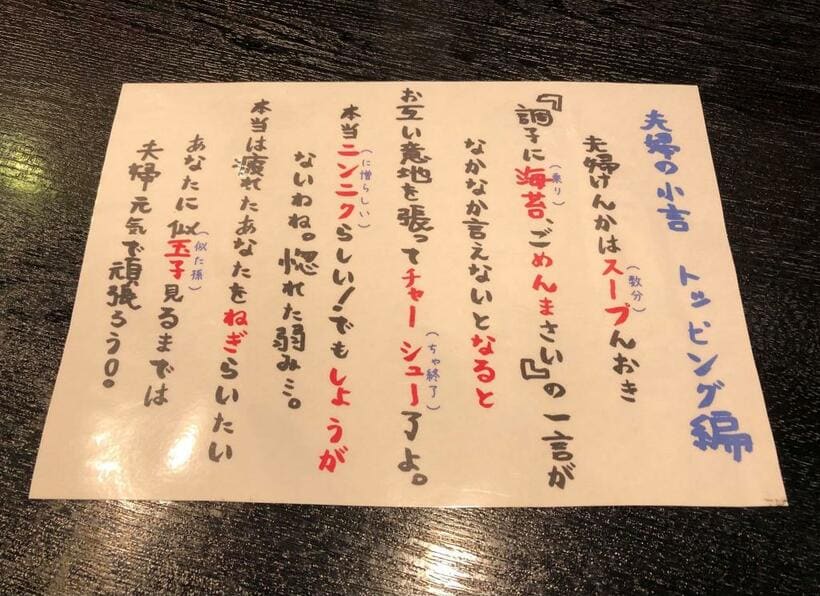 夫婦の小言 トッピング編
夫婦けんかはスープんおき
(数分)
『調子に海苔、ごめんまさい』の一言が
(乗り)
なかなか言えないとなると
お互い意地を張ってチャーシュー了よ。
(ちゃ終了)
本当ニンニクらしい!でもしょうが
(に憎らしい)
ないわね。惚れた弱み…。
本当は疲れたあなたをねぎらいたい
あなたに似玉子見るまでは
(似た孫)
夫婦元気で頑張ろう○。